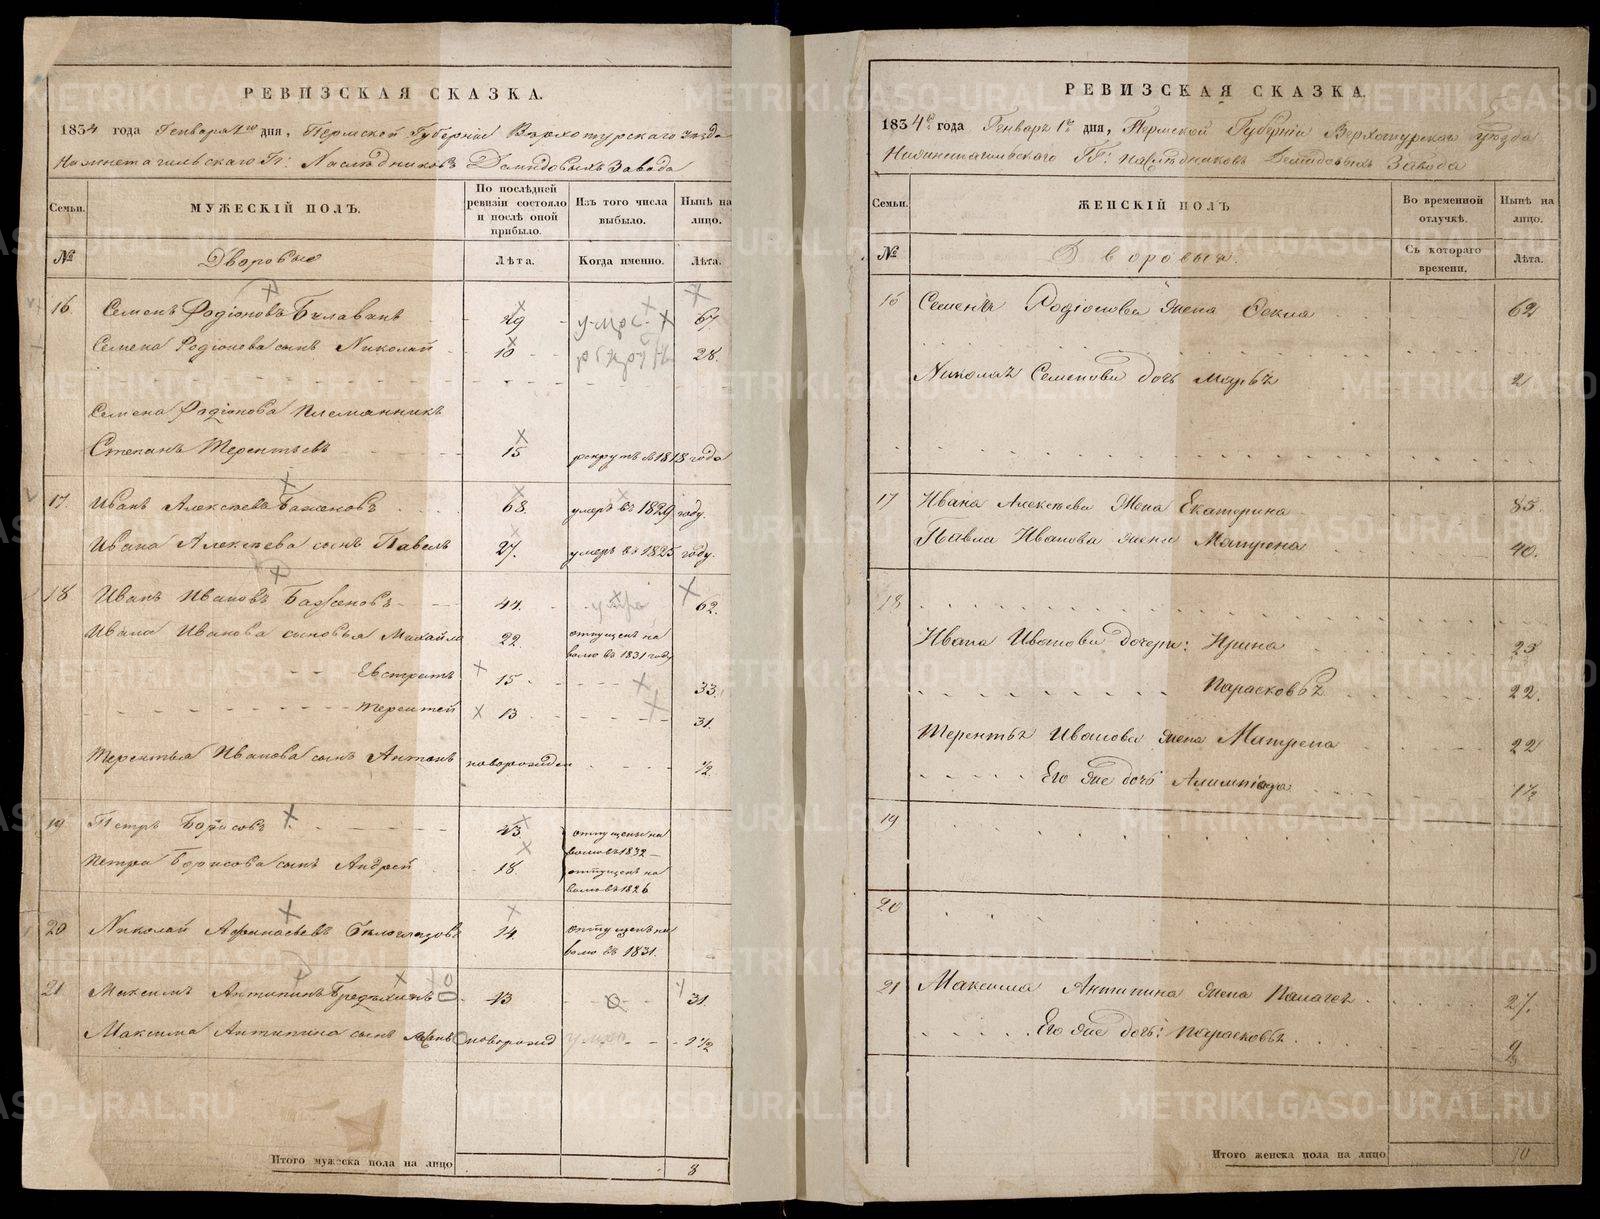 РЕВИЗСКАЯ СКАЗКА.
1834 года Генваря 1го дня, Пермской Губерніи Верхотурскаго уезда
Нижнетагильскаго Гг: Наследниковъ Демидовыхъ Завода
Семьи.
МУЖЕСКІЙ ПОЛЪ.
По послѣдней ревизіи состояло и послѣ оной прибыло.
Изъ того числа выбыло.
Нынѣ на лицо.
№
Дворовые
Лѣта.
Когда именно.
Лѣта.
16. Семенъ Родіоновъ Булавинъ 49 умре 67
Семена Родіонова сынъ Николай 10 28.
Семена Родіонова племянникъ
Степанъ Терентьевъ 15 рекрутъ в 1818 года
17. Иванъ Алексѣевъ Баженовъ 68. умеръ въ 1829 году.
Ивана Алексѣева сынъ Павелъ 27. умеръ въ 1825 году.
18 Иванъ Ивановъ Баженовъ 44. умре 62.
Ивана Иванова сыновья Михайло 22. отпущенъ на волю въ 1831 году
Евстратъ 15 33.
Терентей 13 31.
Терентья Иванова сынъ Антонъ новорожден 1/2.
19 Петръ Борисовъ 43 отпущенъ на волю въ 1832
Петра Борисова сынъ Андрей 18. отпущенъ на волю въ 1826
20 Николай Афанасьевъ Бѣлоглазовъ 14. отпущенъ на волю въ 1831.
21 Максимъ Антипинъ 13 31.
Максима Антипина сынъ новорожд умре 1 1/2
Итого мужеска пола на лицо 8
РЕВИЗСКАЯ СКАЗКА.
1834го года Генваря 1го дня, Пермской Губерніи Верхотурскаго уѣзда
Нижнетагильскаго Гг: Наслѣдниковъ Демидовыхъ Завода
Семьи.
ЖЕНСКІЙ ПОЛЪ
Во временной отлучкѣ.
Нынѣ на лицо.
№
Дворовыя.
Съ котораго времени.
Лѣта.
16 Семена Родіонова жена Фекла 62
Николая Семенова дочь Марья 2
17 Ивана Алексѣева Жена Екатерина 85.
Павла Иванова жена Матрена 40.
18
Ивана Иванова дочери: Ирина 25
Парасковья 22.
Терентья Иванова жена Матрена 22
Его же дочь Алимпіада 1 1/2
19
20
21 Максима Антипина жена Палагея 27.
Его же дочь: Парасковья 9
Итого женска пола на лицо 10
METRIKI.GASO-URAL.RU